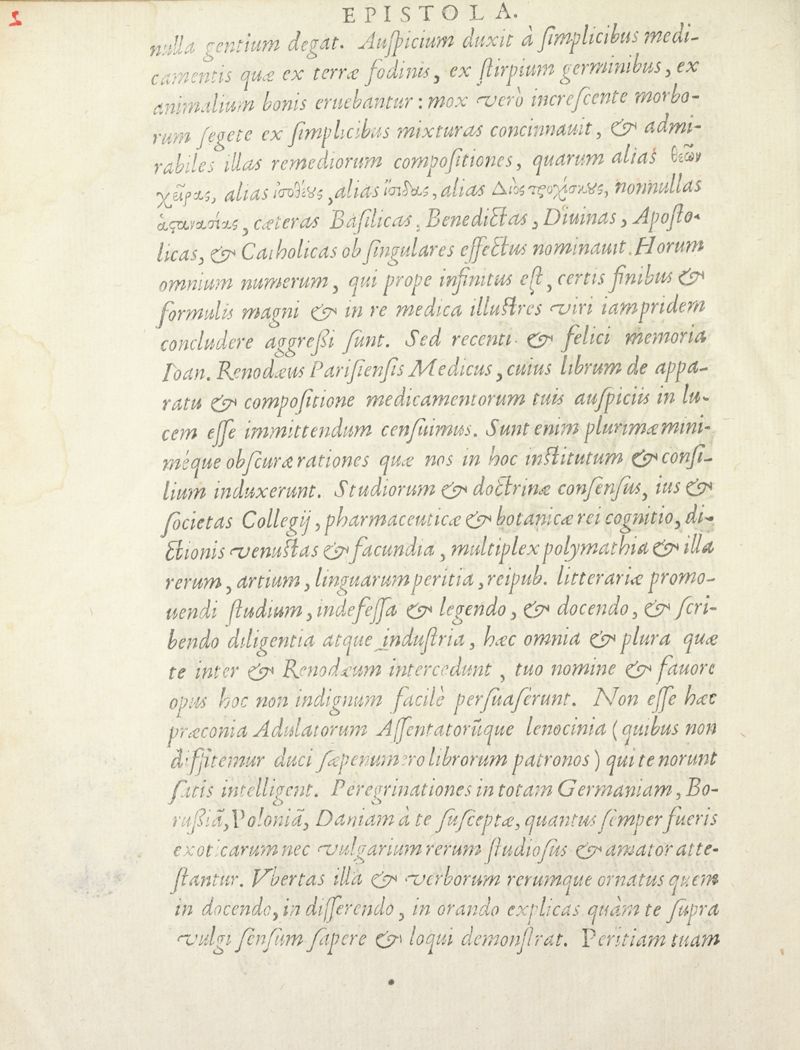 2
EPISTOLA.
nulla gentium degat. Auſpicium duxit à ſimplicibus medi-
camentis quæ ex terræ fodinis, ex ſtirpium germinibus, ex
animalium bonis eruebantur: mox verò increſcente morbo-
rum ſegete ex ſimplicibus mixturas concinnauit, & admi-
rabiles illas remediorum compoſitiones, quarum alias θεῶν
χεῖρας, alias ἰσοθέους, alias ἴσιδας, alias Διὸς τροχίσκους, nonnullas
ἀθανασίας, cæteras Baſilicas, Benedictas, Diuinas, Apoſto-
licas, & Catholicas ob ſingulares effectus nominauit. Horum
omnium numerum, qui prope infinitus eſt, certis finibus &
formulis magni & in re medica illuſtres viri iampridem
concludere aggreßi ſunt. Sed recenti & felici memoria
Ioan. Renodæus Pariſienſis Medicus, cuius librum de appa-
ratu & compoſitione medicamentorum tuis auſpiciis in lu-
cem eſſe immittendum cenſuimus. Sunt enim plurimæ mini-
méque obſcuræ rationes quæ nos in hoc inſtitutum & conſi-
lium induxerunt. Studiorum & doctrinæ conſenſus, ius &
ſocietas Collegij, pharmaceuticæ & botanicæ rei cognitio, di-
ctionis venuſtas & facundia, multiplex polymathia & illa
rerum, artium, linguarum peritia, reipub. litterariæ promo-
uendi ſtudium, indefeſſa & legendo, & docendo, & ſcri-
bendo diligentia atque induſtria, hæc omnia & plura quæ
te inter & Renodæum intercedunt, tuo nomine & fauore
opus hoc non indignum facilè perſuaſerunt. Non eſſe hæc
præconia Adulatorum Aſſentatorũque lenocinia (quibus non
diffitemur duci ſæpenumero librorum patronos) qui te norunt
ſatis intelligent. Peregrinationes in totam Germaniam, Bo-
rußiã, Poloniã, Daniam à te ſuſceptæ, quantus ſemper fueris
exoticarum nec vulgarium rerum ſtudioſus & amator atte-
ſtantur. Vbertas illa & verborum rerumque ornatus quem
in docendo, in differendo, in orando explicas quàm te ſupra
vulgi ſenſum ſapere & loqui demonſtrat. Peritiam tuam